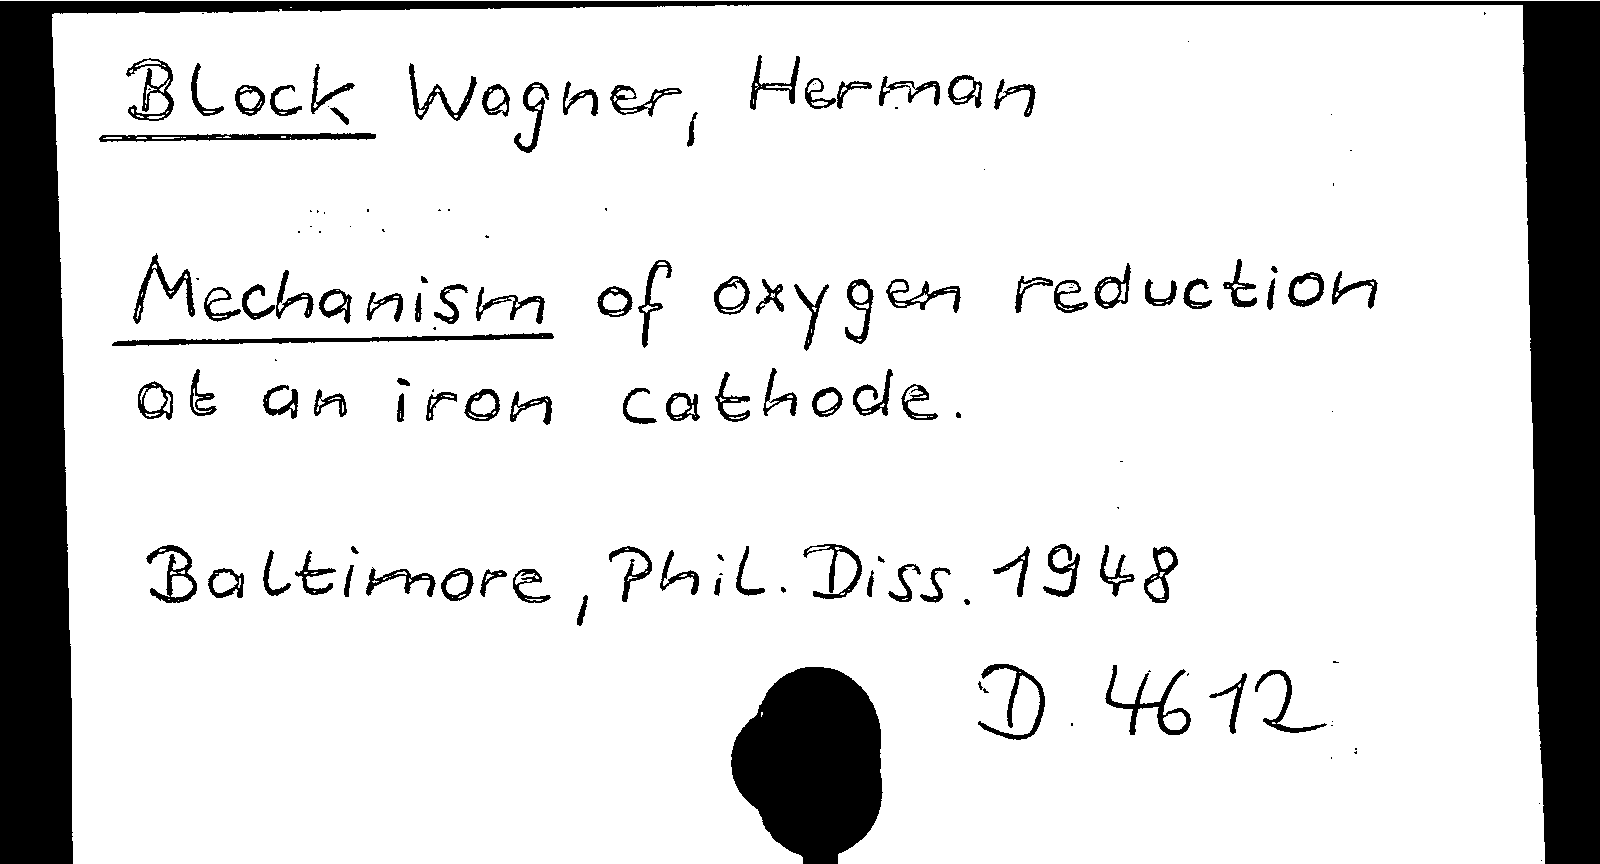 Block Wagner, Herman
Mechanism of oxygen reduction
at an iron cathode.
Baltimore, Phil. Diss. 1948
D. 4612